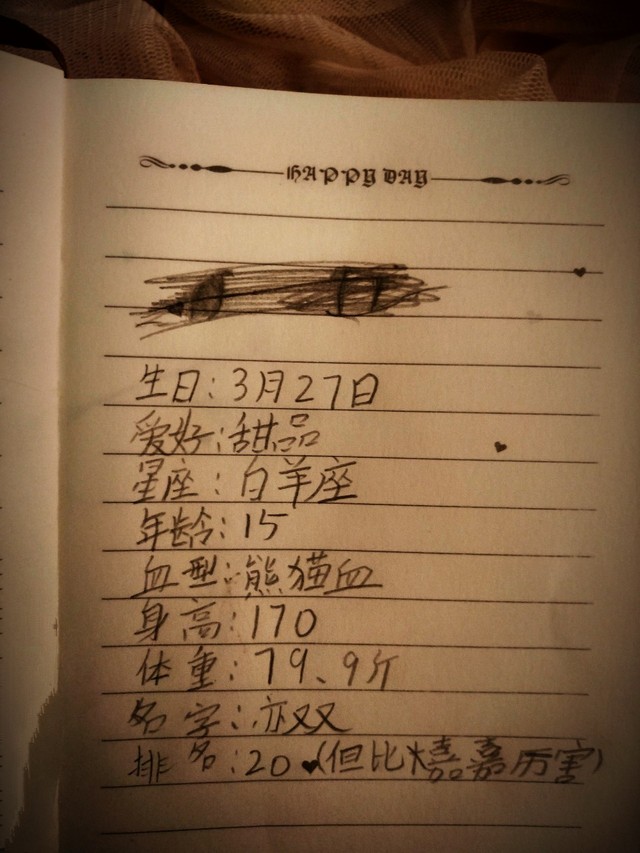 HAPPY DAY
生日：3月27日
爱好：甜品
星座：白羊座
年龄：15
血型：熊猫血
身高：170
体重：79、9斤
名字：亦双
排名：20♥(但比嘉嘉厉害)